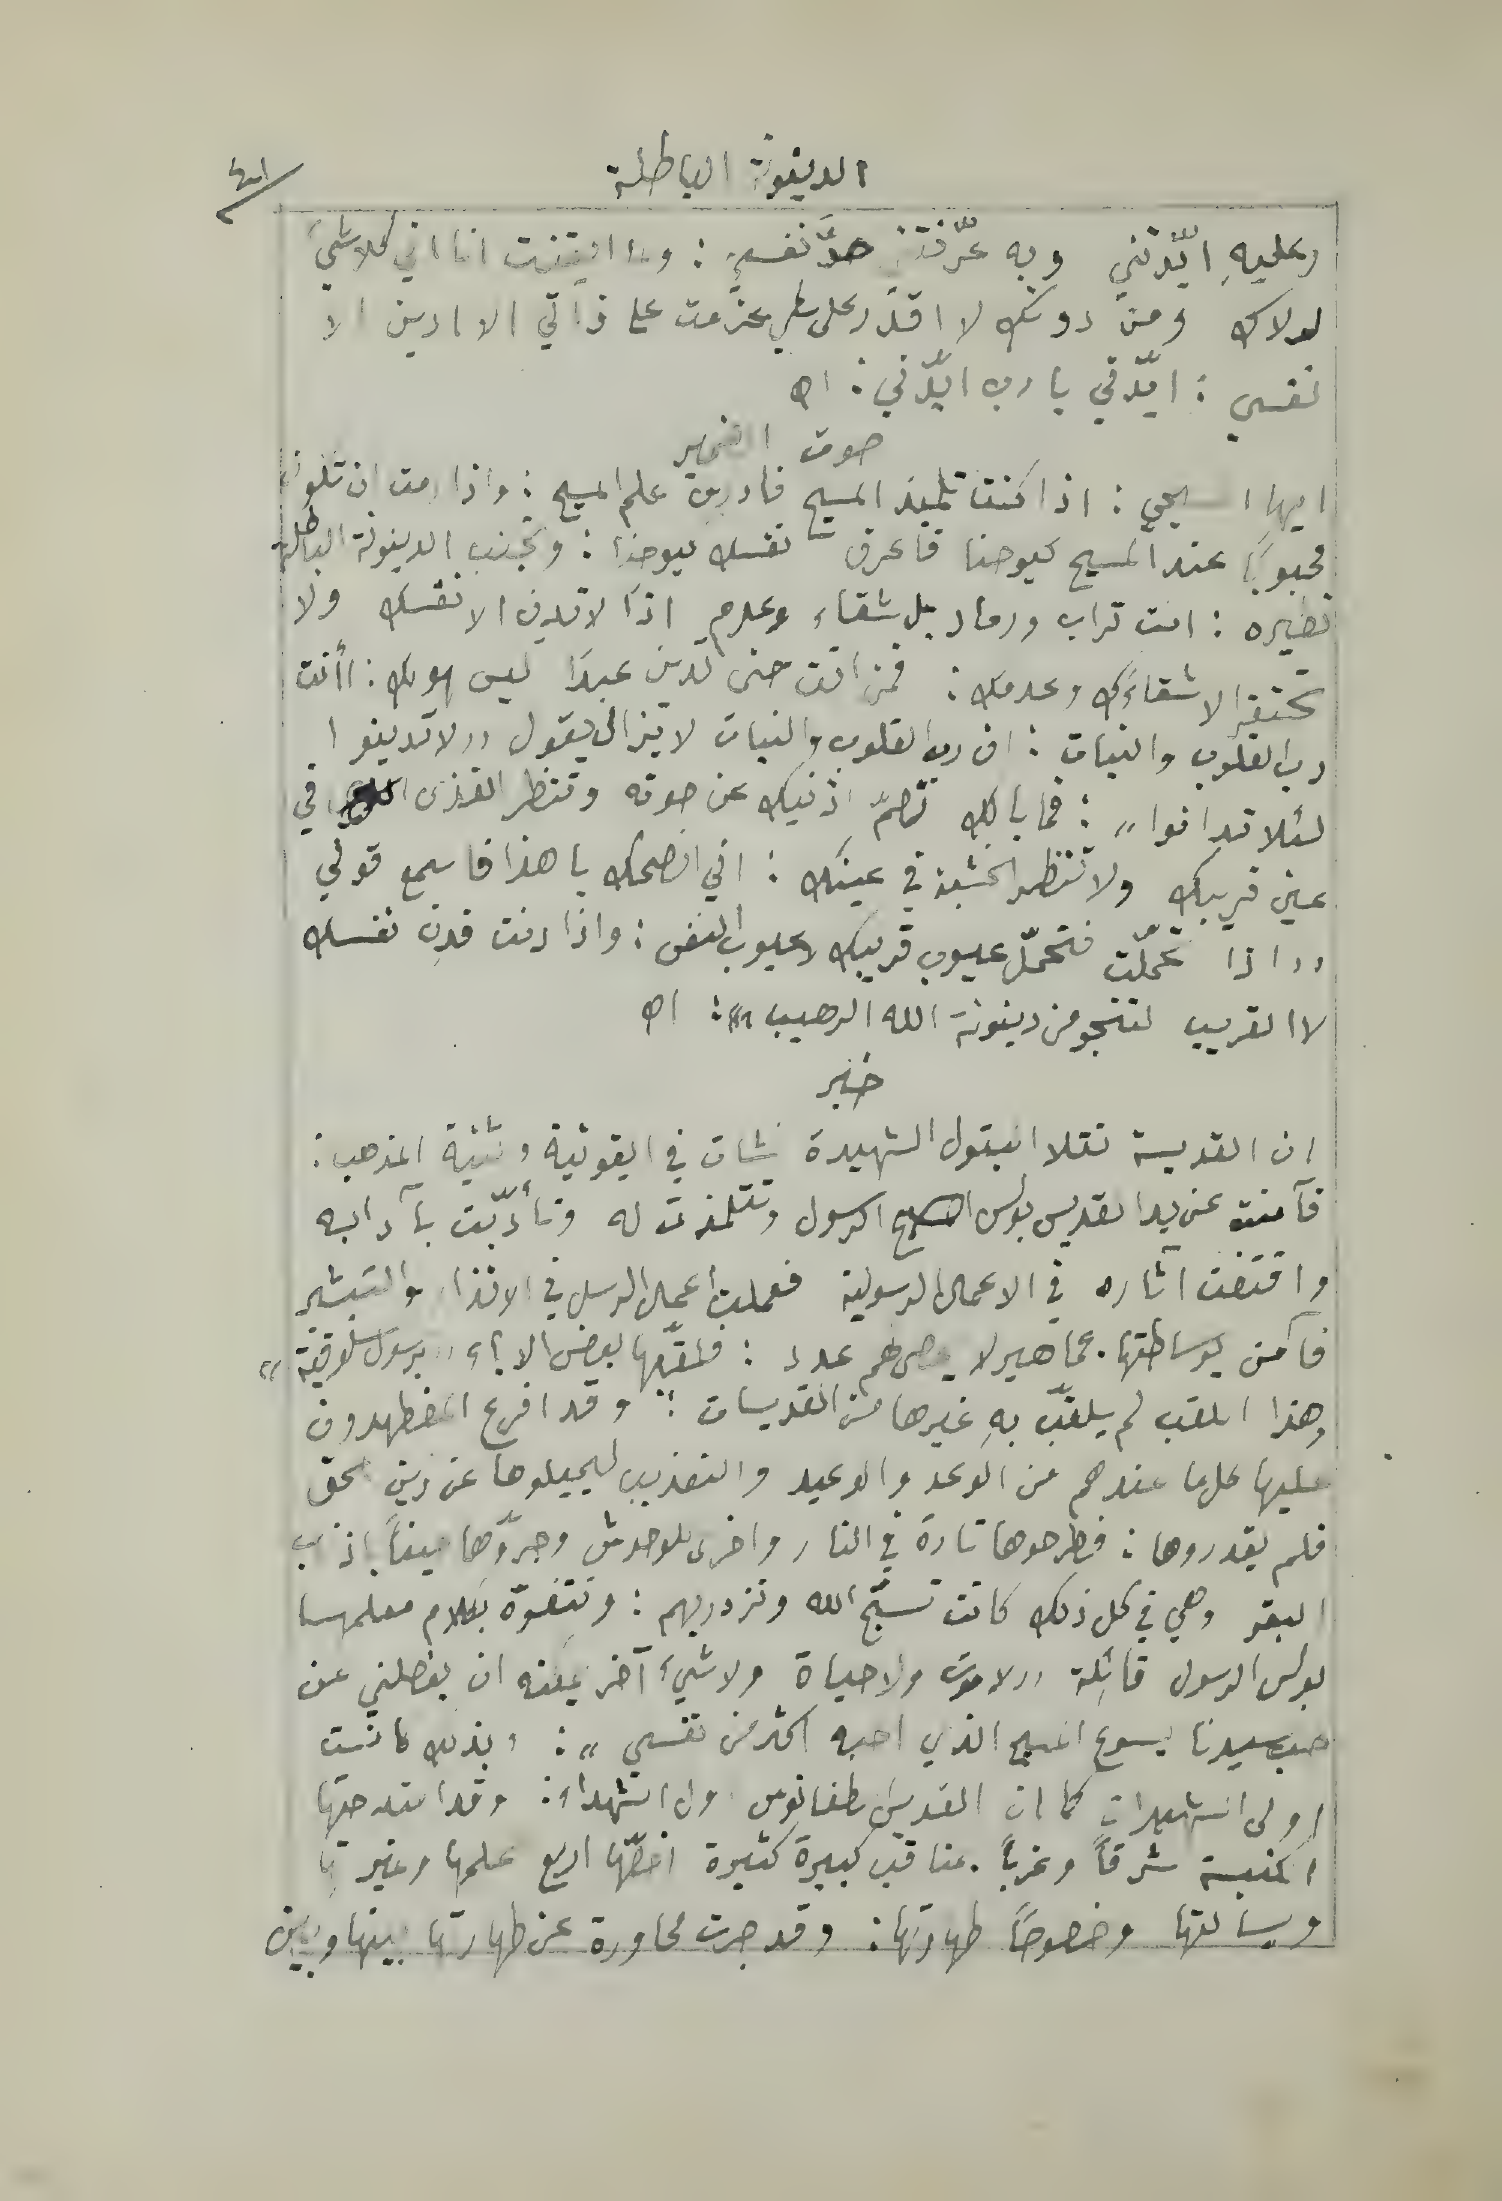 الدينونة الباطلة
وعليهِ ايّدتني وبه عرّفتني حدَّ نفسي : ولما ايقنت انا اني كلاشيءَ
لولاك ومن دونك لا اقدر على شيءٍ عزمت على ذاتي الا ادين الا
نفسي : ايّدني يا رب ايّدني : اھ
صوت الضمير
ايها المسيحي : اذا كنت تلميذ المسيح فادرس علم المسيح : واذا رمت ان تكون
محبوبًا عند المسيح كيوحنا فاعرف نفسك كيوحنا : وتجنب الدينونة الباطلة
نظيره : انت تراب ورماد بل شقاء وعدم اذًا لا تدين الا نفسك ولا
تحتقر الا شقاءَك وعدمك : فمن انت حتى تدين عبدًا ليس هو لك : أأنت
رب القلوب والنيات : ان رب القلوب والنيات لا يزال يقول «لا تدينوا
لئلا تدانوا» : فما بالك تصمّ اذنيك عن صوته وتنظر القذى في
عين قريبك ولا تنظر الخشبة في عينك : اني انصحك يا هذا فاسمع قولي
«اذا تحمّلت فتحمّل عيوب قريبك لا عيوب النفس : واذا دنت فدِن نفسك
لا القريب لتنجو من دينونة الله الرهيبة» : اھ
خبر
ان القديسة تقلا البتول الشهيدة نشات في ايقونية وثنية المذهب :
فآمنت عن يد القديس بولس الرسول وتتلمذت له وتأدّبت بآدابه
واقتفت آثاره في الاعمال الرسولية فعملت اعمال الرسل في الانذار والتبشير
فآمن بوساطتها جماهير لا يحصى لهم عدد : فلقّبها بعض الاباء «برسول سلوقية»
وهذا اللقب لم يلقّب بهِ غيرها من القديسات : وقد افرغ المضطهدون
عليها كل ما عندهم من الوعد والوعيد والتعذيب ليحيلوها عن دين الحق
فلم يقدروها : فطرحوها تارة في النار واخرى للوحوش وجرّوها حينًا باذناب
البقر وهي في كل ذلك كانت تسبّح الله وتزدريهم : وتتفوّه بكلام معلمها
بولس الرسول قائلة «لا موت ولا حياة ولا شيءَ آخر يمكنه ان يفصلني عن
حب سيدنا يسوع المسيح الذي احبه اكثر من نفسي» : وبذلك كانت
اولى الشهيدات كما ان القديس اسطفانوس اول الشهداء : وقد امتدحتها
الكنيسة شرقًا وغربًا بمناقب كبيرة كثيرة اخصّها اربع علمها وغيرتها
وبسالتها وخصوصًا طهارتها : وقد جرت محاورة عن طهارتها بينها وبين